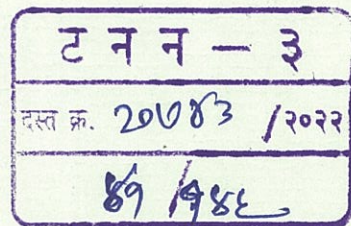 ट न न — ३
दस्त क्र. २०७४३ /२०२२
४१ /१४६